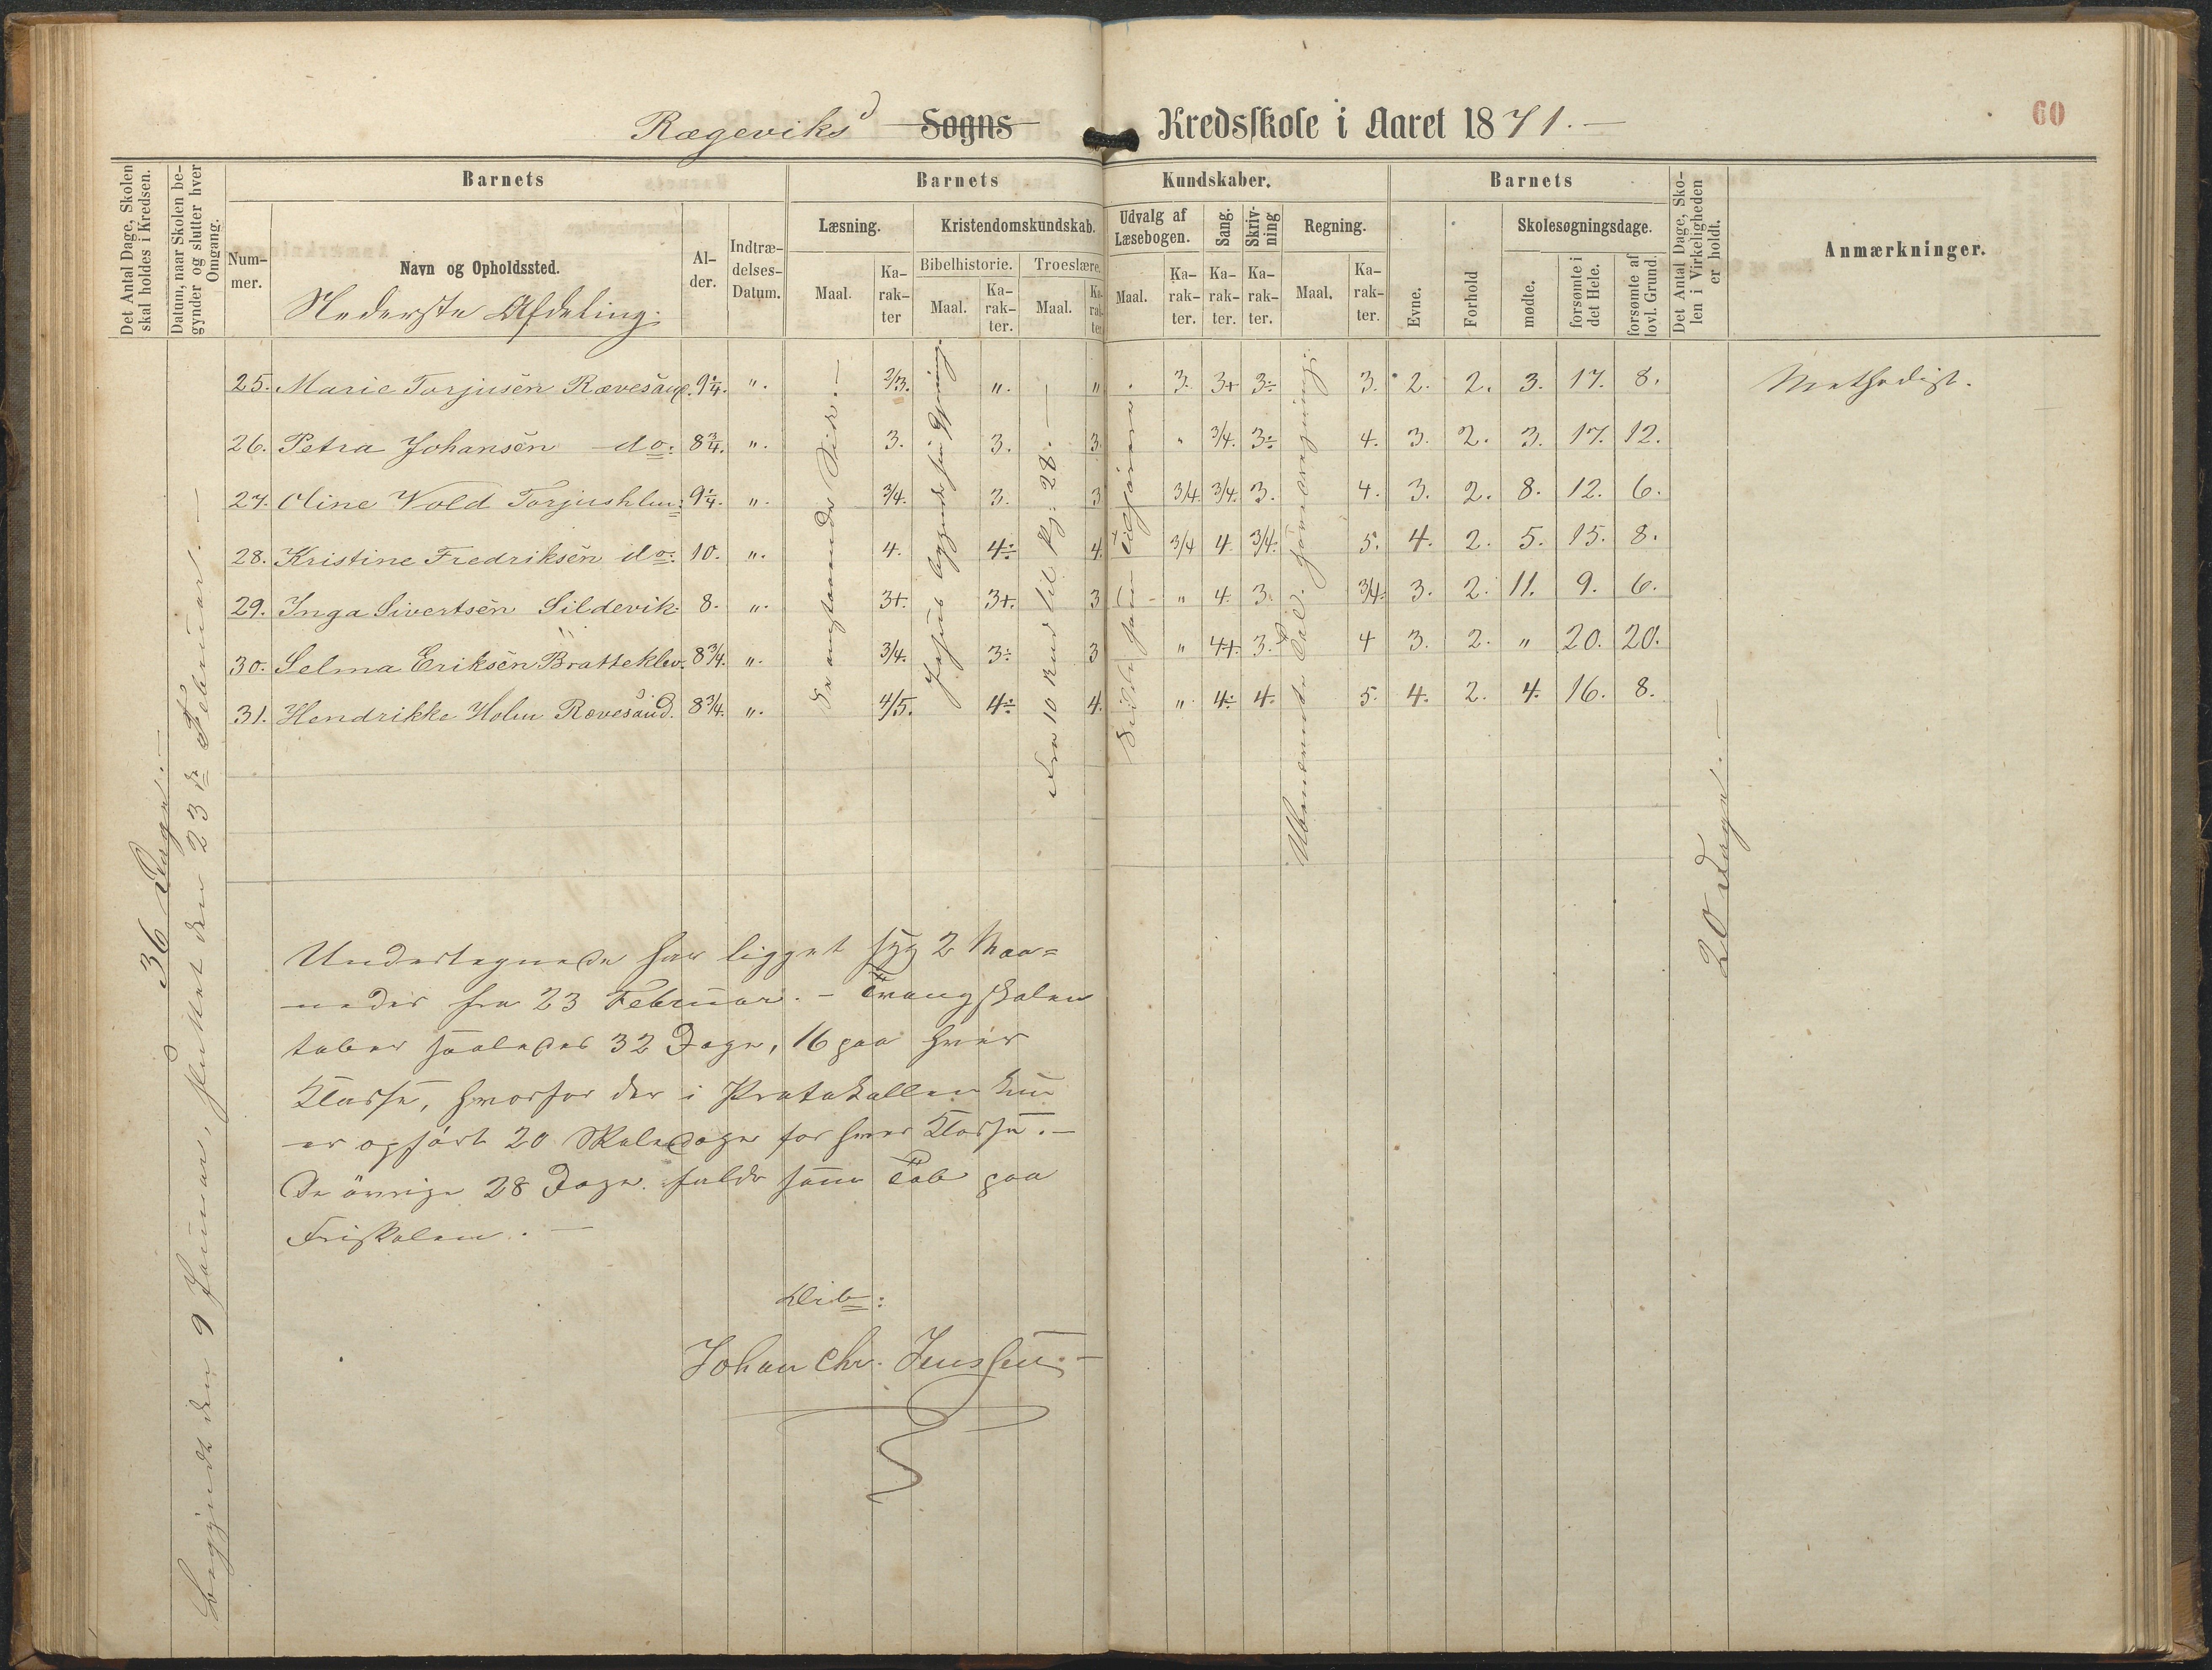 Rægeviks Sogns Kredsskole i Aaret 1871.-
60
Det Antal Dage, Skolen skal holdes i Kredsen.
Datum, naar Skolen begynder og slutter hver Omgang.
Barnets
Barnets
Kundskaber.
Barnets
Det Antal Dage, Skolen i Virkeligheden er holdt.
Anmærkninger.
Nummer.
Navn og Opholdssted.
Alder.
Indtrædelses-Datum.
Læsning.
Kristendomskundskab.
Udvalg af Læsebogen.
Sang.
Skrivning
Regning.
Evne.
Forhold
Skolesøgningsdage.
Maal.
Karakter
Bibelhistorie.
Troeslære.
Maal.
Karakter.
Maal.
Karakter
Maal.
Karakter.
Karakter.
Karakter.
Maal.
Karakter.
mødte.
forsømte i det Hele.
forsømte af lovl. Grund.
Nederste Afdeling.
25. Marie Torjusen Rævesand. 9 1/4. ". 2/3. ". " . 3. 3+ 3÷ 3. 2. 2. 3. 17. 8. Methodist.
26. Petra Johansen do. 8 3/4. ". 3. 3. 3. " 3/4. 3÷ 4. 3. 2. 3. 17. 12.
27. Oline Wold Torjushlm: 9 1/4. ". 3/4. 3. 3 3/4. 3/4. 3. 4. 3. 2. 8. 12. 6.
28. Kristine Fredriksen do. 10. ". 4. 4÷ 4. 3/4 4. 3/4. 5. 4. 2. 5. 15. 8.
29. Inga Sivertsen Sildevik. 8. ". 3+. 3+. 3 " 4. 3. 3/4. 3. 2. 11. 9. 6.
30. Selma Eriksen Bratteklev. 8 3/4. ". 3/4. 3÷ 3 " 4+. 3. 4 3. 2. " 20. 20.
31. Hendrikke Holm Rævesand. 8 3/4. ". 4/5. 4÷ 4. " 4÷ 4. 5. 4. 2. 4. 16. 8.
36 Dage.-
Begyndt den 9 Januar, sluttet den 23de Februar.-
Fra 10 Bud til Pg: 28.-
20 Dage.-
Undertegnede har ligget syg 2 Maa=
neder fra 23 Februar. - Tvangskolen
taber saaledes 32 Dage, 16 paa hver
Klasse, hvorfor der i Protokollen kun
er opført 20 Skoledage for hver Klasse.-
De øvrige 28 Dage falde som Tab paa
Friskolen.-
Johan Chr. Jenssen.-